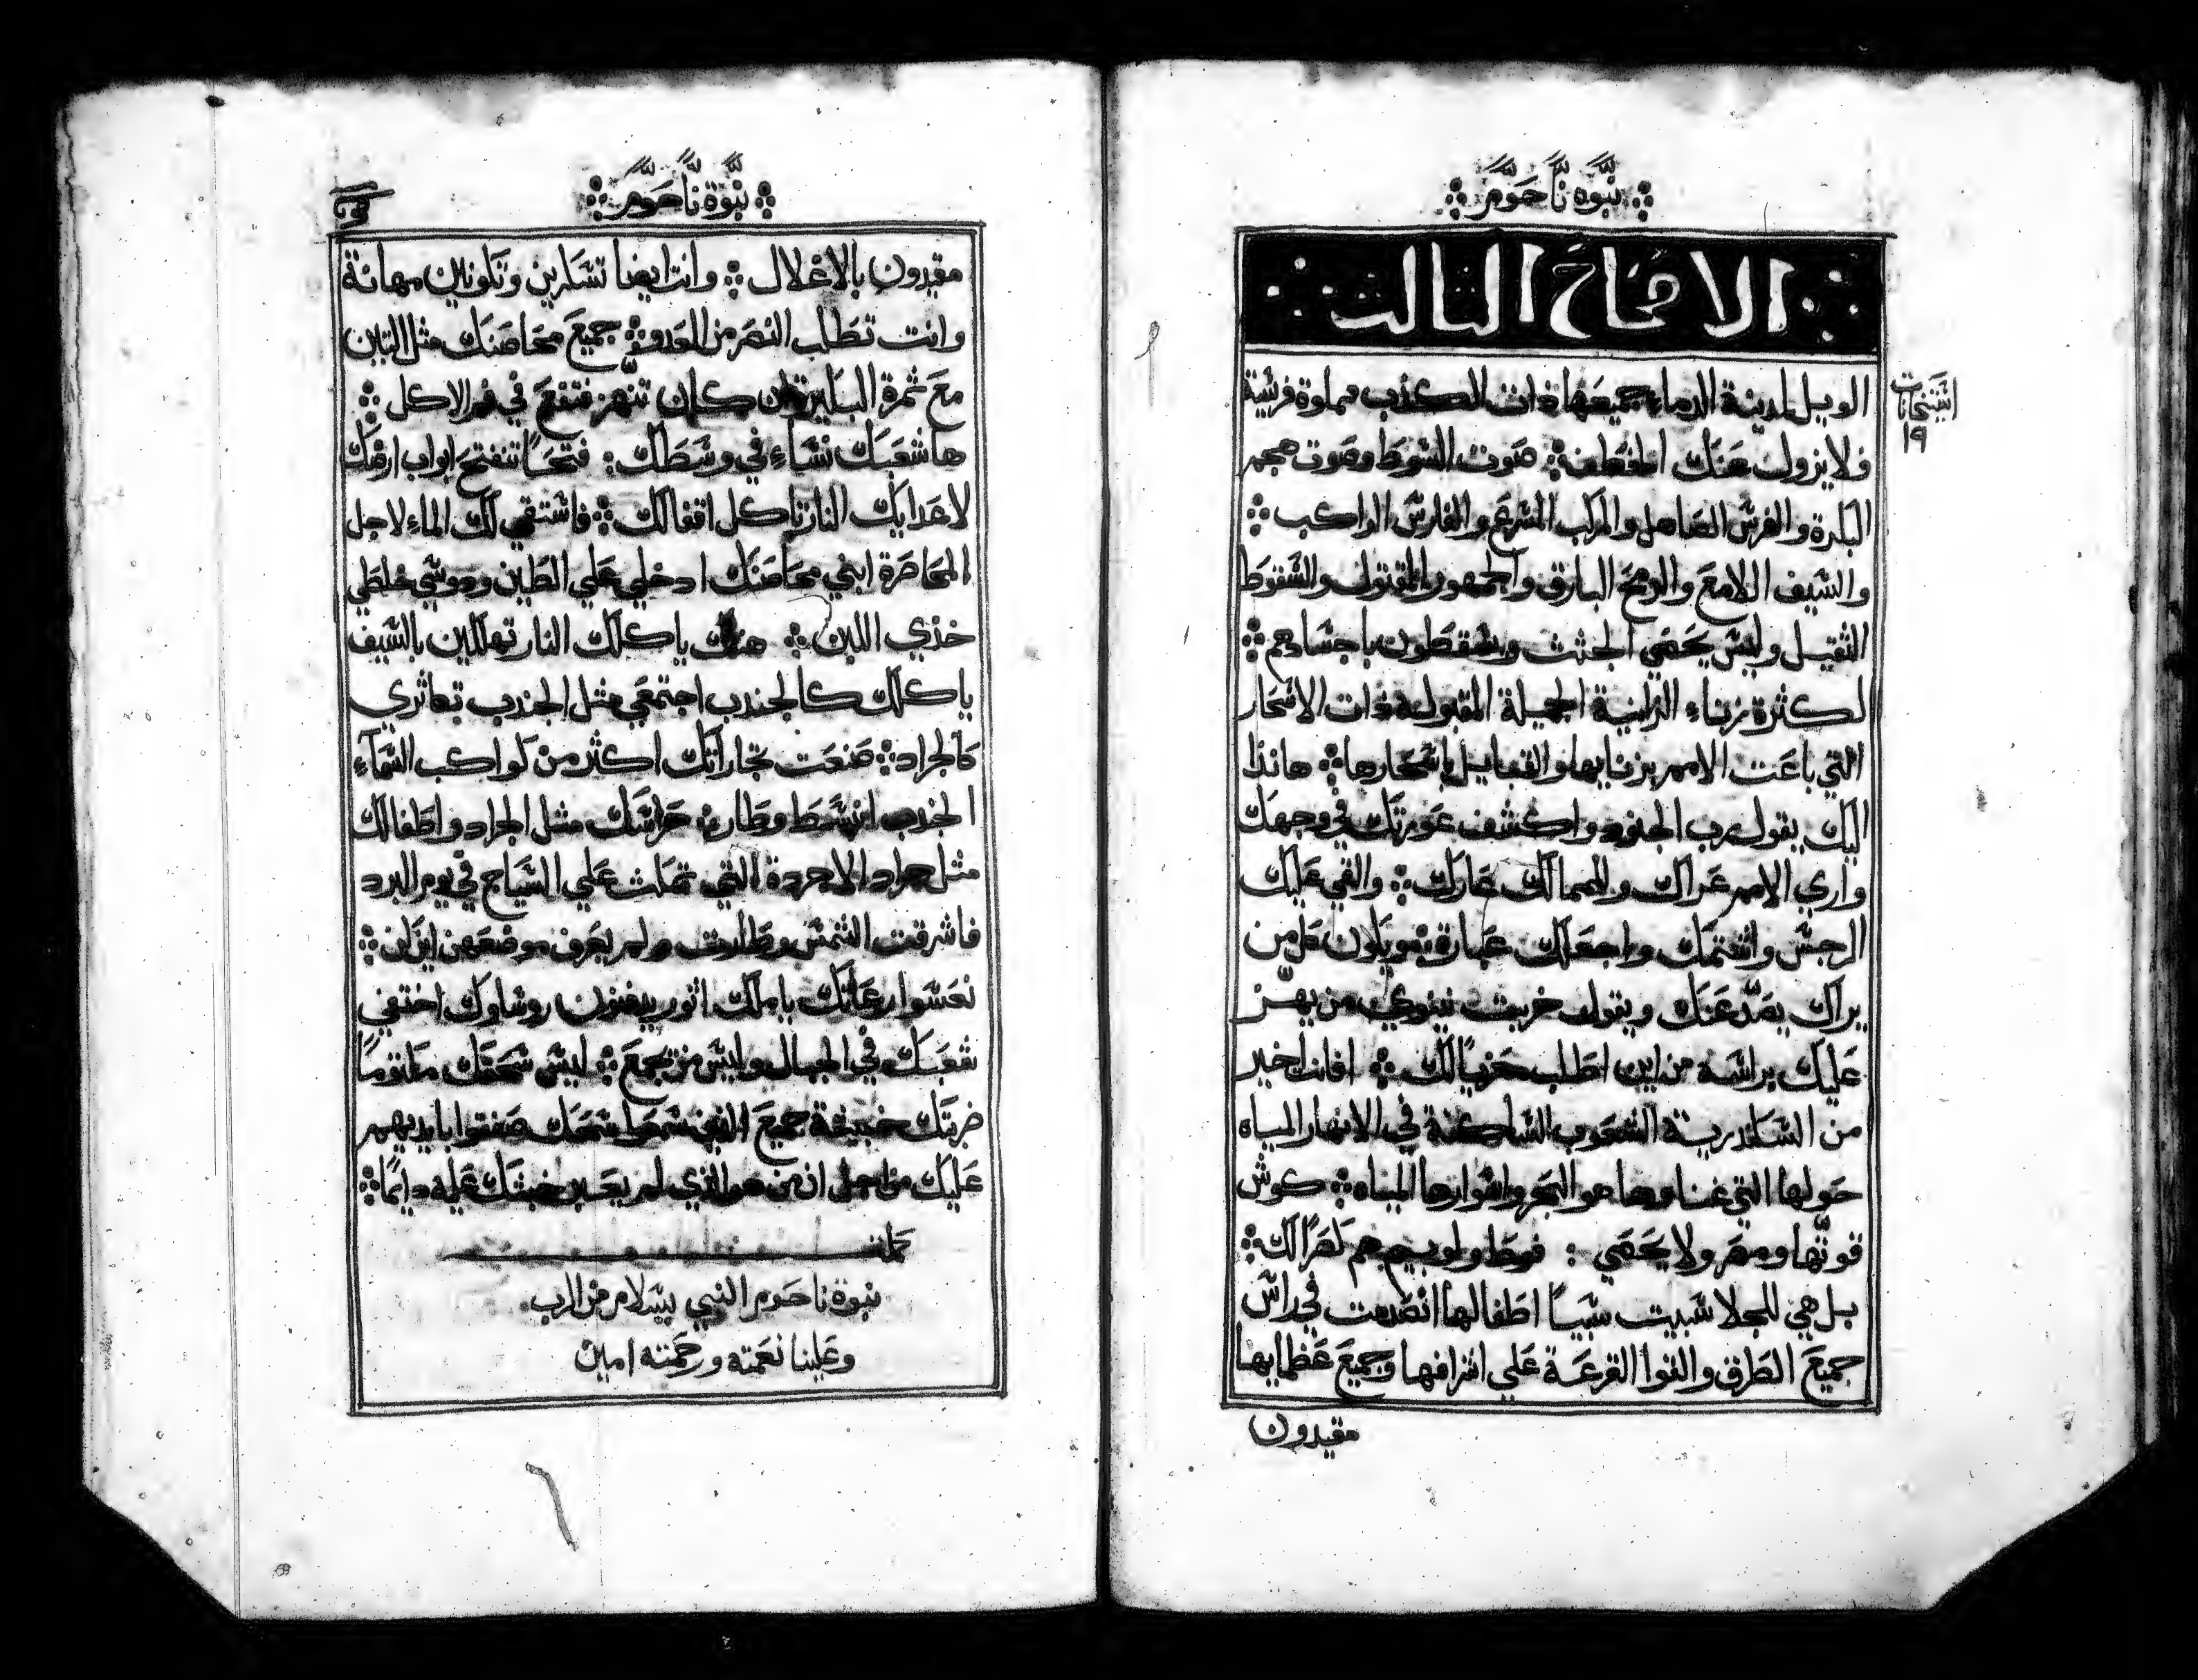 نبوة ناحوم
الاصحاح الثالث
الويل لمدينة الدماء جميعها ذات الكذب مملوة فريسة
ولا يزول عنك الخطف صوت السوط وصوت هجم
البكرة والفرس الصاهل والمركب المسرع والفارس الراكب
والسيف اللامع والرمح البارق والجمهور المقتول والسقوط
الثقيل وليس يحصي الجثث ويسقطون باجسادهم
لكثرة زناء الزانية الجميلة المقبولة ذات الاسحار
التي باعت الامم بزنايها والقبايل باسحارها هانذا
اليك يقول رب الجنود واكشف عورتك في وجهك
واري الامم عراك والممالك عارك والقي عليك
الرجس واشتمك واجعلك عبارة ويكون كل من
يراك يصد عنك ويقول خربت نينوي من يهز
عليك براسه من اين اطلب معزيا لك افانت اخير
من اسكندرية الشعوب الساكنة في الانهار المياه
حولها التي غناوها هو البحر واسوارها المياه كوش
قوتها ومصر ولا يحصي فوط ولوبيم هم نصرا لك
بل هي للجلا سبيت سبيا اطفالها انصدمت في راس
جميع الطرق والقوا القرعة علي اشرافها وجميع عظمايها
مقيدون
اشتخانات
١٩
نبوة ناحوم
مقيدون بالاغلال وانت ايضا تسكرين وتكونين مهانة
وانت تطلب النصر من العدو جميع محاصنك مثل التين
مع ثمرة البكيرة ان كان تنهز فتقع في فم الاكل
ها شعبك نساء في وسطك فتحا تنفتح ابواب ارضك
لاعدايك النار تاكل اقفالك فاستقي لك الماء لاجل
المحاصرة ابني محاصنك ادخلي علي الطين ودوسي خلطي
خذي اللبن هناك ياكلك النار تهلكين بالسيف
ياكلك كالجندب اجتمعي مثل الجندب تكاثري
كالجراد صنعت تجاراتك اكثر من كواكب السماء
الجندب انبسط وطار حراسك مثل الجراد واطفالك
مثل جراد الاجردة التي تمكث علي السياج في يوم البرد
فاشرقت الشمس وطارت ولم يعرف موضعهن اين كن
نعسوا رعاتك ياملك اثور يدفنون روساوك اختفي
شعبك في الجبال وليس من يجمع ليس سحقك مكتوما
ضربتك خبيثة جميع الذين سمعوا سمعك صفقوا بايديهم
عليك من اجل ان من هو الذي لم يعبر خبثك عليه دايما
كملت
نبوة ناحوم النبي بسلام من الرب
وعلينا نعمته ورحمته امين